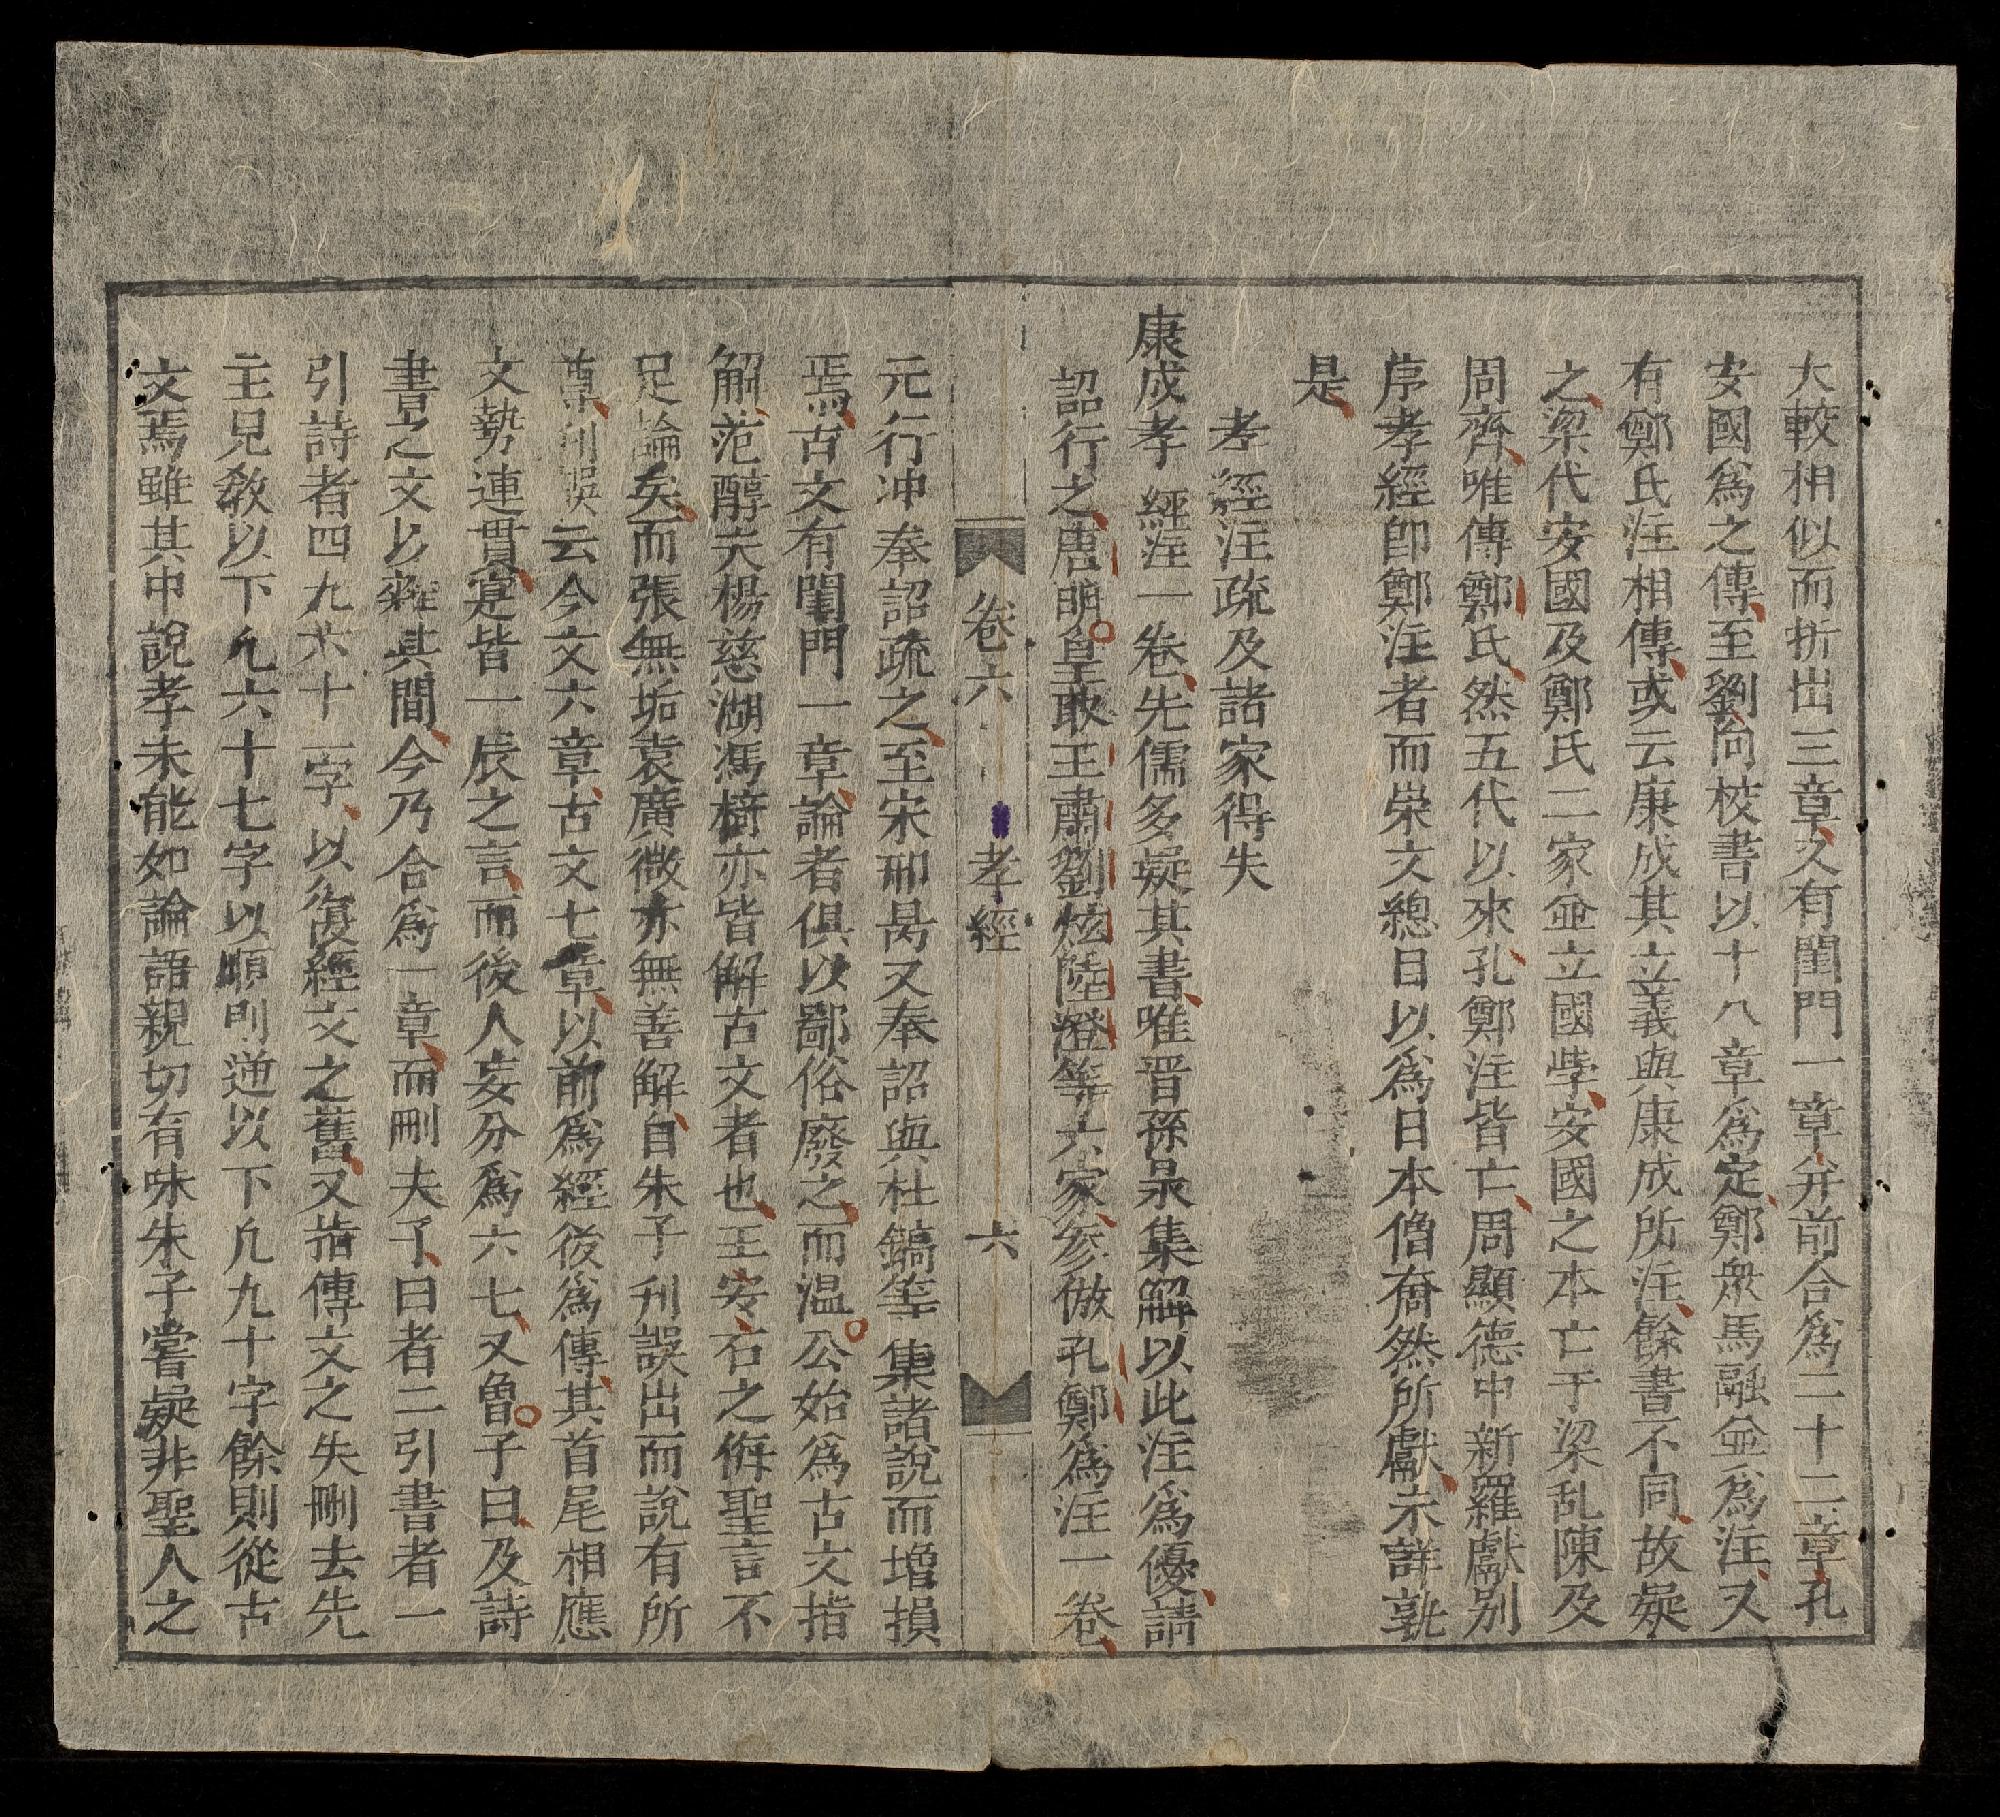 大較相似而折出三章又有閨門一章并前合爲二十二章孔
安國爲之傳至劉向校書以十八章爲定鄭衆馬融並爲注又
有鄭氏注相傳或云康成其立義與康成所注餘書不同故疑
之梁代安國及鄭氏二家並立國學安國之本亡于梁乱陳及
周齊唯傳鄭氏然五代以來孔鄭注皆亡周顯德中新羅獻别
序孝經即鄭注者而崇文總目以爲日本僧奝然所獻未詳孰
是
孝經注疏及諸家得失
康成孝經注一卷先儒多疑其書唯晋孫㫤集解以此注爲優請
詔行之唐明皇取王肅劉炫陸澄等六家參倣孔鄭爲注一卷
卷六 孝經 六
元行冲奉詔疏之至宋邢昺又奉詔與杜鎬等集諸說而增損
焉古文有閨門一章論者俱以鄙俗廢之而温公始爲古文指
解范醇夫楊慈湖馮椅亦皆解古文者也王安石之侮聖言不
足論矣而張無垢袁廣微亦無善解自朱子刊誤出而說有所
尊刊誤云今文六章古文七章以前爲經後爲傳其首尾相應
文勢連貫寔皆一辰之言而後人妄分爲六七又魯子曰及詩
書之文以雜其間今乃合爲一章而刪夫子曰者二引書者一
引詩者四九六十一字以復經文之舊又指傳文之失刪去先
王見敎以下凢六十七字以順則逆以下凢九十字餘則從古
文焉雖其中說孝未能如論語親切有味朱子嘗疑非聖人之